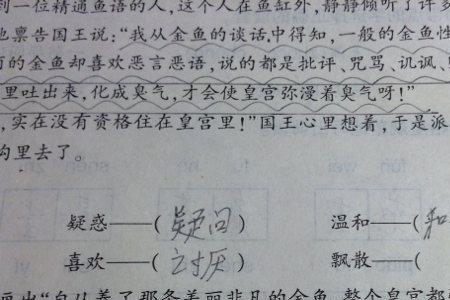 到一位精通鱼语的人,这个人在鱼缸外,静静倾听了许多
也禀告国王说:“我从金鱼的谈话中得知,一般的金鱼性
的金鱼却喜欢恶言恶语,说的都是批评、咒骂、讥讽、
里吐出来,化成臭气,才会使皇宫弥漫着臭气呀!”
,实在没有资格住在皇宫里!”国王心里想着,于是派
沟里去了。
疑惑——(疑问) 温和——(和
喜欢——(讨厌) 飘散——(
养了那条美丽非凡的金鱼,整个皇宫都